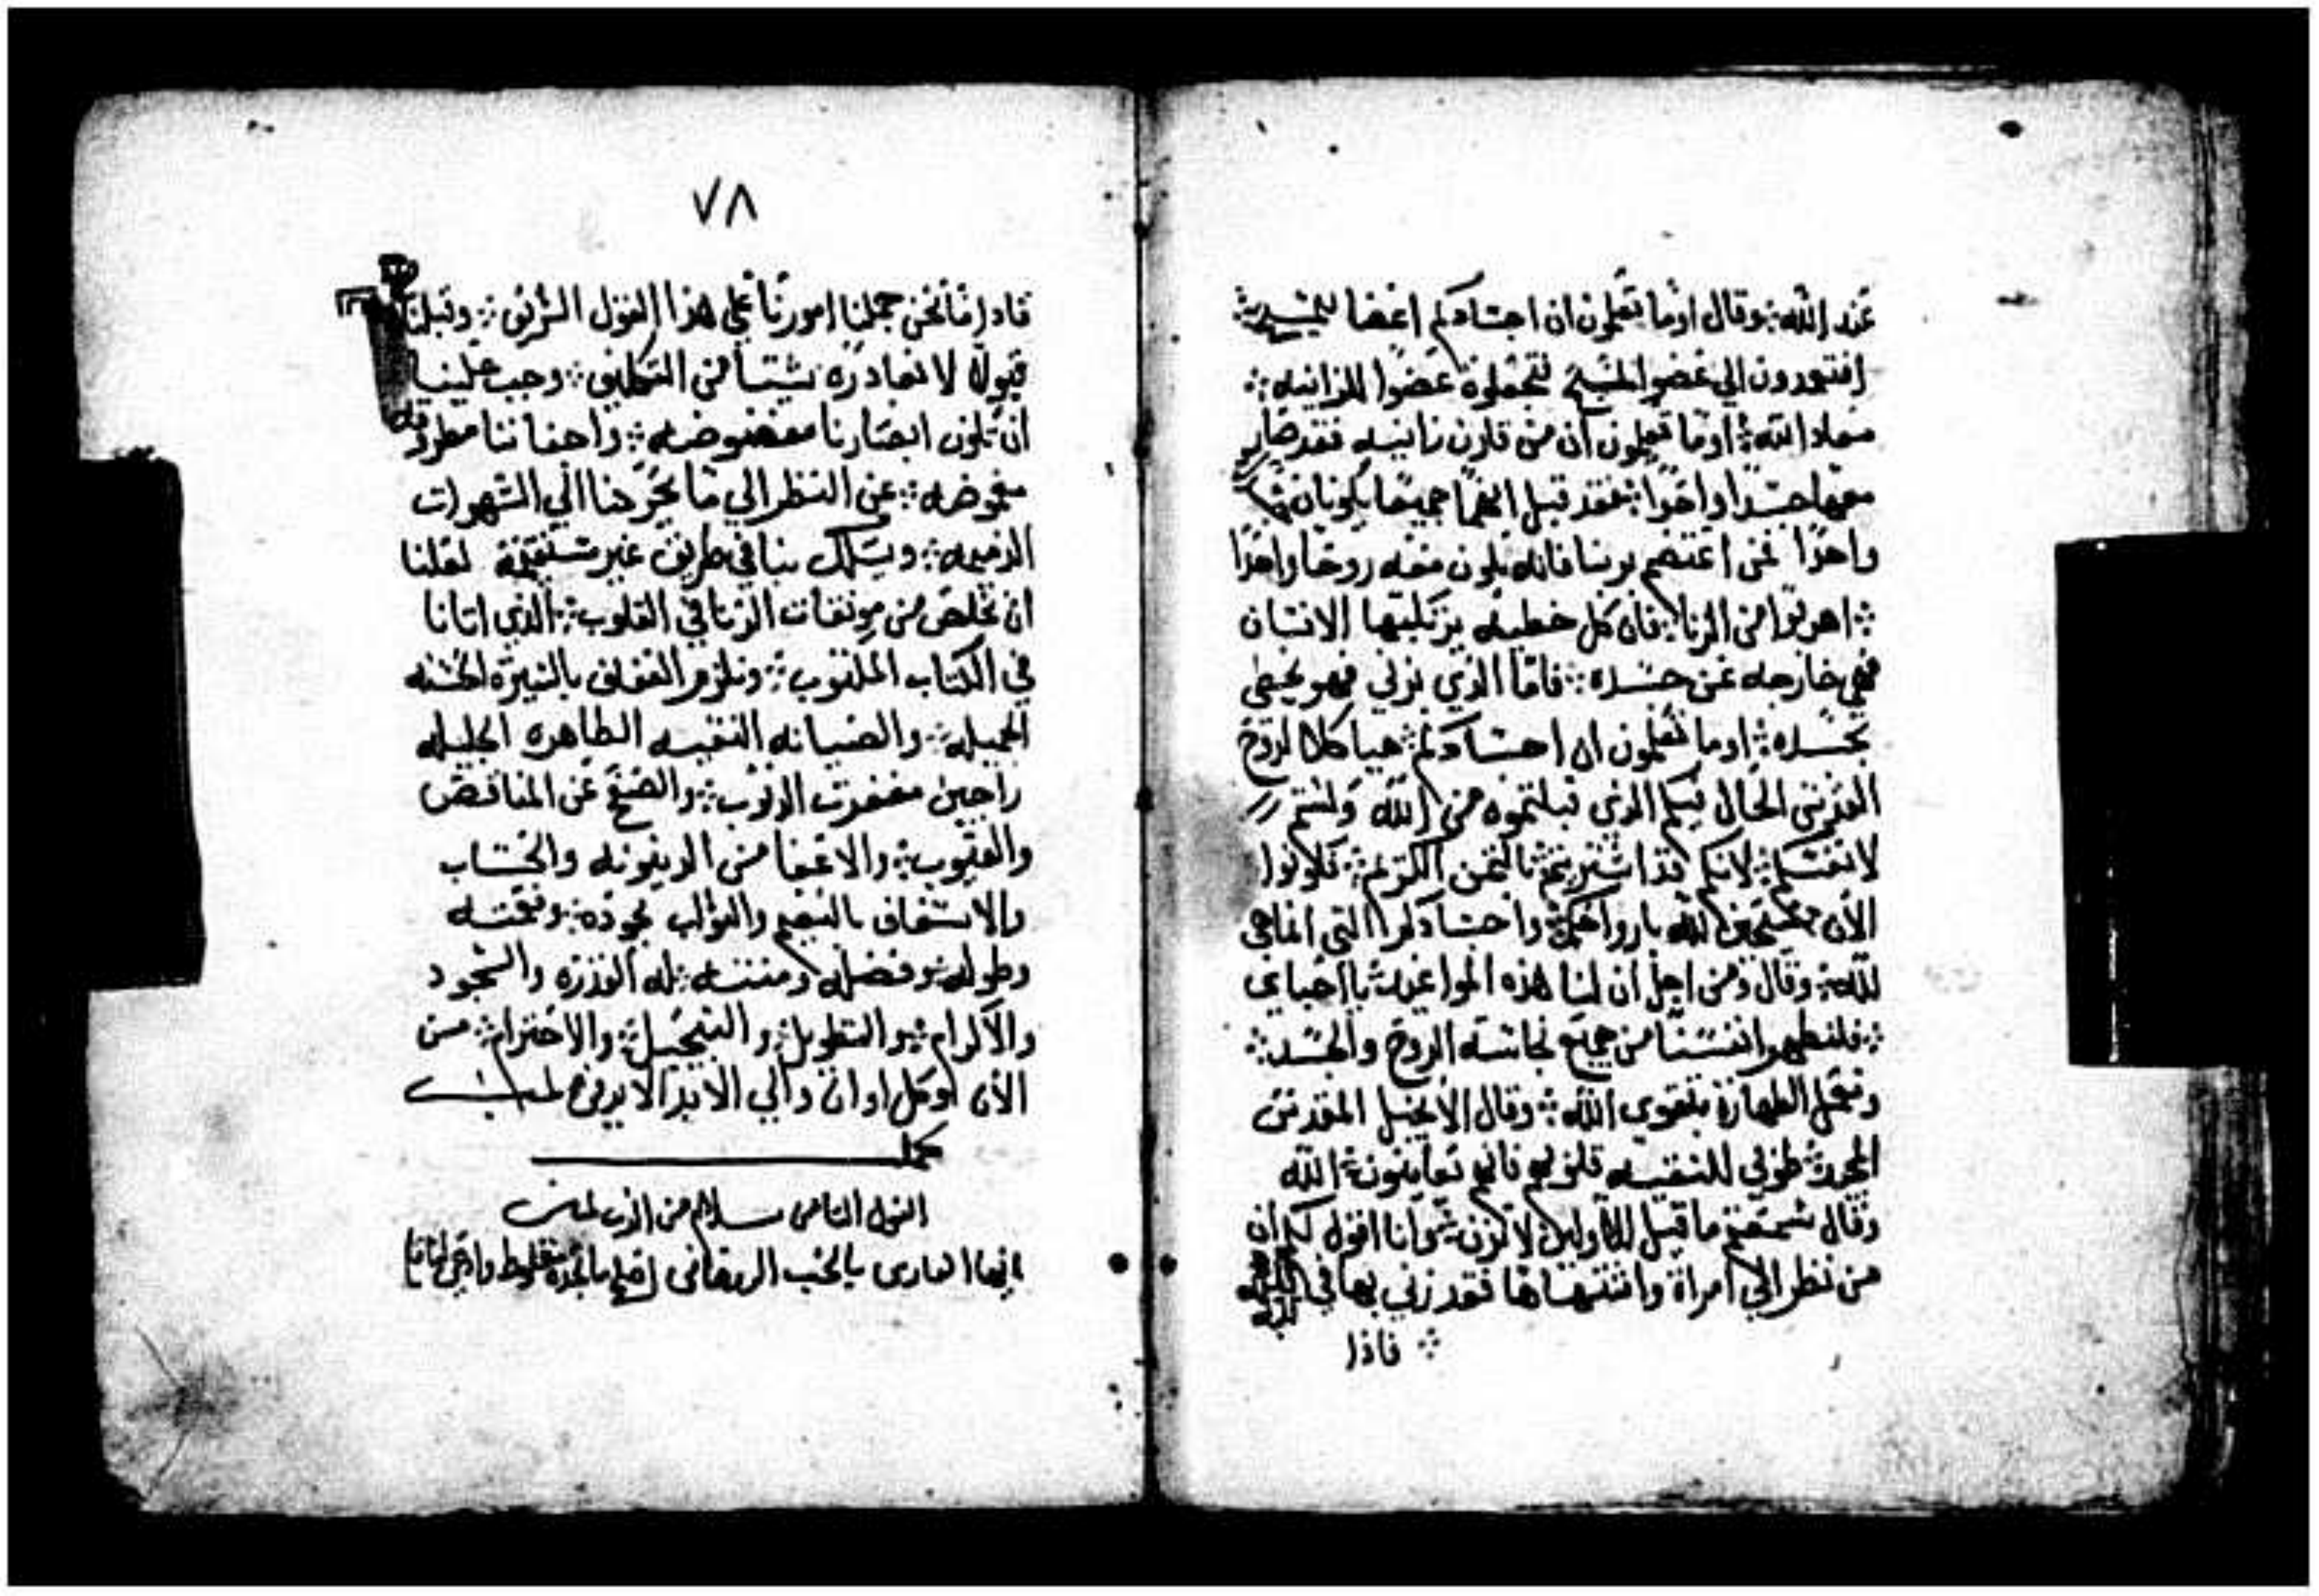 عند الله ؛ وقال اوما تعلمون ان اجسادكم اعضا للمسيح
افتعمدون الي عضو المسيح لتجعلوه عضوا للزانيه ؛
معاد الله ؛ اوما تعلمون ان من قارن زانيه فقد صار
معها جسدا واحدا ؛ فقد قيل انهما جميعا يكونان
واحدا فمن اعتصم بربنا فانه يكون معه روحا واحدا
؛ اهربوا من الزنا ؛ فان كل خطيه يرتكبها الانسان
فهي خارجه عن جسده ؛ فاما الذي يزني فهو يخطي
بجسده ؛ اوما تعلمون ان اجسادكم ؛ هياكلا لروح
القدس الحال فيكم الذي قبلتموه من الله ولستم
لانفسكم ؛ لانكم قد اشتريتم بالثمن الكريم ؛ فكونوا
الان الله بارواحكم واجسادكم التي انما هي
لله ؛ وقال ومن اجل ان لنا هذه المواعيد يا احباي
؛ فلنطهر انفسنا من جميع نجاسة الروح والجسد ؛
ونعمل الطهارة بتقوى الله ؛ وقال الانجيل المقدس
المجيد ؛ طوبى للنقيه قلوبهم فانهم يعاينون الله
وقال سمعتم ما قيل للاولين لا تزن ؛ وانا اقول لكم ان
من نظر الي امراة واشتهاها فقد زني بها في قلبه
؛ فاذا
٧٨
فاد اما نحن جملنا امورنا علي هذا القول الشريف ؛ وقبلنا
قبولا لا نغادره شيئا من التكليف ؛ وجب علينا
ان تكون ابصارنا مغضوضه ؛ واجفاننا مطروفه
مغموضه ؛ عن النظر الي ما يخرجنا الي الشهوات
الذميمه ؛ ويسلك بنا في طريق غير مستقيمة لعلنا
ان نخلص من موبقات الزنا في القلوب ؛ الذي اتانا
في الكتاب المكتوب ؛ ونلزم العفاف بالسيرة الحسنه
الجميله ؛ والصيانه النقيه الطاهره الجليله
راجين مغفرت الذنوب ؛ والصفح عن المناقص
والعيوب ؛ والاعفا من الدينونه والحساب
والاسعاف بالنعيم والثواب بجوده ؛ ونعمته
وطوله ؛ وفضله ومنته ؛ له القدره والسجود
والاكرام ؛ والتطويل ؛ والتبجيل ؛ والاحترام ؛ من
الان وكل اوان والي الابد الابدين امين
كمل
القول الثامن سلام من الرب امين